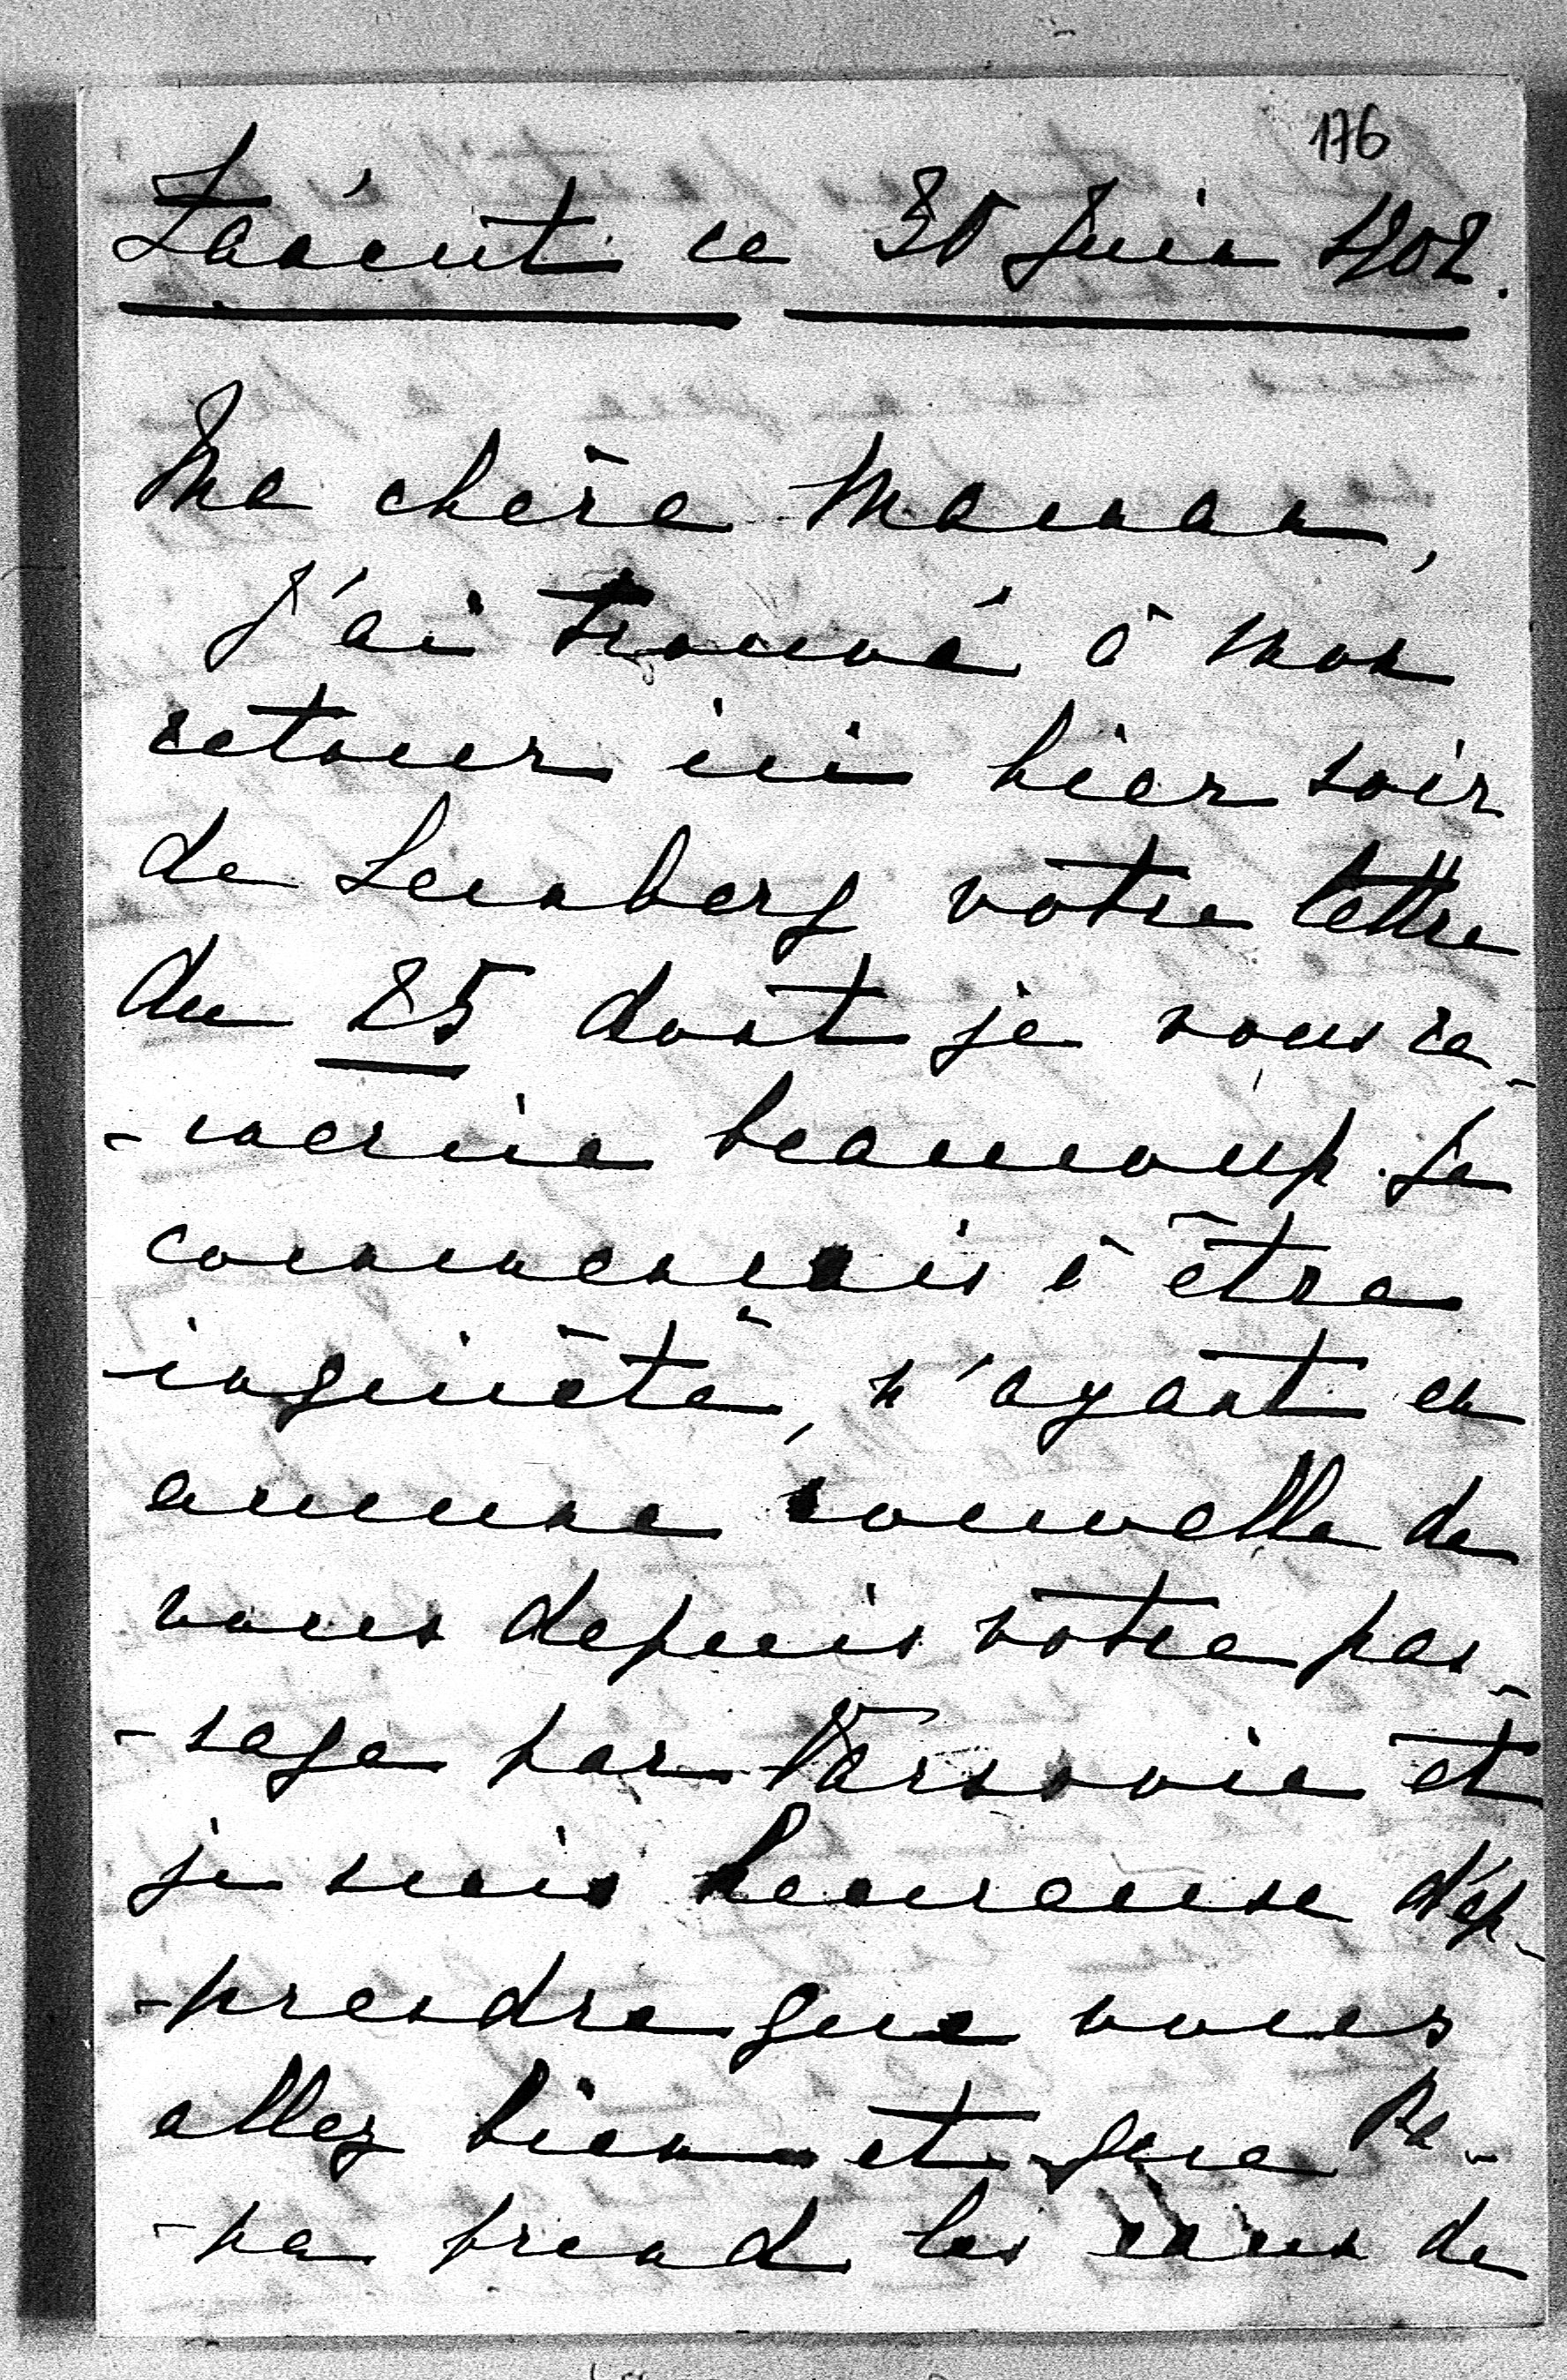 176
Łańcut ce 30 Juin 1902.
Ma chère Maman,
J'ai trouvé à mon
retour ici hier soir
de Lemberg votre lettre
du 25 dont je vous re-
-mercie beaucoup. Je
commençais à être
inquiète, n'ayant eu
aucune nouvelle de
vous depuis votre pas-
-sage par Varsovie et
je suis heureuse d'ap-
-prendre que vous
allez bien et que Pa-
-pa prend les eaux de